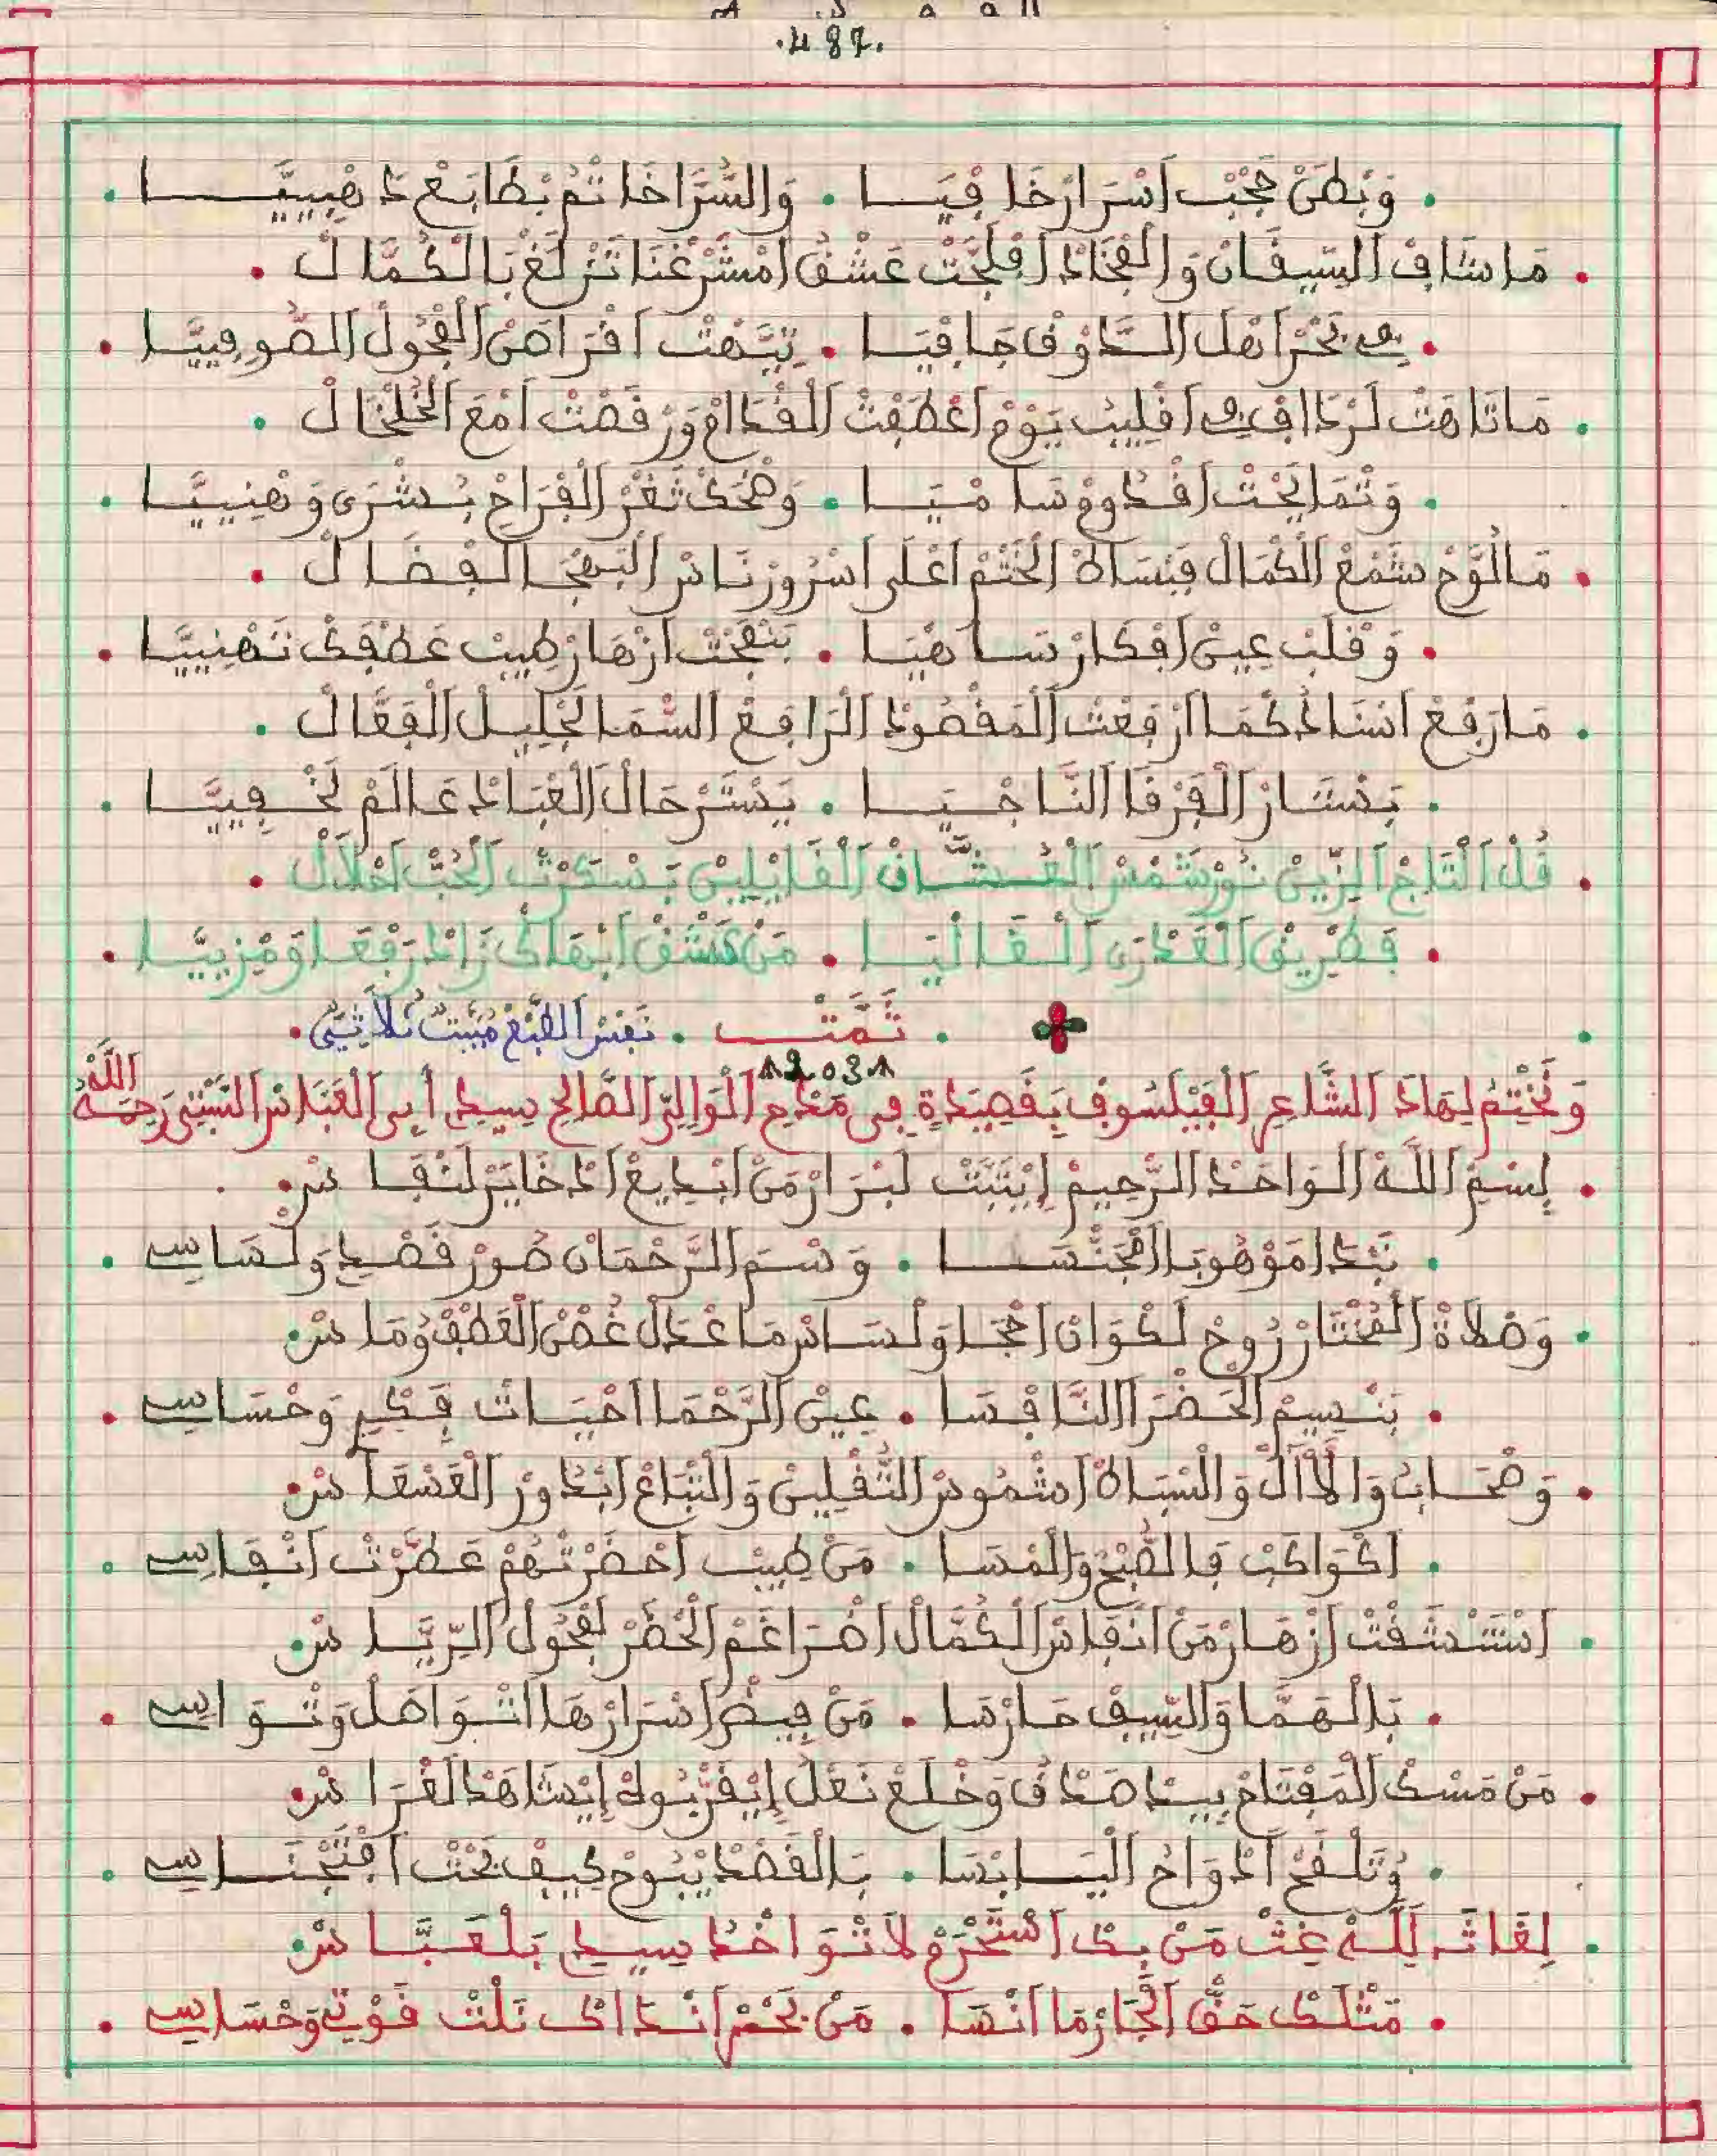 .487.
وَبْطَنْ حُجْبْ اَسْرَارْ خَافْيَا . وَالسُّرَّا خَاتْمُ بْطَابَعْ دَهْبِيَّا .
مَا شَافْ السِّيفَانْ وَالْفْجَادْ اَفْلَجَّتْ عَشْقُ اَمْشَرْغْنَا تَزْلَغْ بَالْكُمَّالْ .
فِي بْحَرْ اَهْلْ السَّدَّاوْ فَاجَافْيَا . تِيَّهْتْ اَفْرَاصْ الْفْحُولْ الصُّوفِيَّا .
مَا تَاهَتْ لَرْدَافْ فِي اَقْلِيبْ يَوْمْ اَعْطَفْتْ الْقْدَامْ وَرْقَصْتْ اَمْعَ الْخَلْخَالْ .
وَتْمَايْحَتْ اَقْدُومْ سَامْيَا . وَضْحَكْ ثَغْرْ الْفْرَاحْ بُشْرَى وَهْنِيَّا .
مَا لَوَّحْ شَمْعْ الْكْمَالْ فَبْسَاطْ الْخَتْمْ اَعْلَى اَسْرُورْ نَاسْ الْبَهْجَا الْفْضَالْ .
وَقْلَبْ عِينْ اَفْكَارْ سَاهْيَا . بَنْفَحْتْ اَزْهَارْ طِيبْ عَطْفَكْ تَهْنِيَّا .
مَا رْفَعْ اَنْشَادْ كْمَا اَرْفَعْتْ الْمَقْصُودْ الْرَافَعْ السّْمَا لَجْلِيلْ الْفَعَّالْ .
بَشَّارْ الْفَرْقَا النَّاجْيَا . يَسْتَرْ حَالْ الْعْبَادْ عَالَمْ لَخْفِيَّا .
قُلْ التَّاجْ الزِّينْ نُورْ شَمْسْ الْعُشَّاقْ الْقَايْلِينْ بَسْكَرْتْ الْحُبّْ اَحْلَالْ .
فَطْرِيقْ الْعَدْرَى الْقَالْيَا . مَنْ كَشْفْ اَبْهَاكْ زَادْ رَفْعَا وَمْزِيَّا .
. تَمَّتْ . نَفْسُ الطَّبْعِ مُبَيَّتْ ثُلَاثِيٌّ .
2031
وَنَخْتِمُ لِهَادَ الشَّاعِرِ الْفَيْلَسُوفِ بِقَصِيدَةٍ فِي مَدْحِ الْوَالِيِّ الصَّالِحِ سِيدِي أَبِي الْعَبَّاسِ السَّبْتِي رَحِمَهُ اللَّهُ
بِسْمِ اللَّهْ الْوَاحَدْ الرَّحِيمْ اِيْتَبَّتْ لَبْرَارْ مَنْ اَبْدِيعْ اَدْخَايَرْ لَنْفَاسْ .
نَبْدَا مَوْهُوبْ الْجَنْسَا . وَسْمَ الرَّحْمَانْ صُورْ قَصْدِي وَلْسَاسِي .
وَصْلَاةْ الْمُخْتَارْ رُوحْ لَكْوَانْ اَحْجَا وَلْسَاسْ مَا عْدَلْ غُصْنْ الْعَطْفْ وُمَاسْ .
بَنْسِيمْ الْحَضْرَا النَّافْسَا . عِينْ الرَّحْمَا اَحْيَاتْ فَكْرِي وَحْسَاسِي .
وَصْحَابُ وَالْآلْ وَالْسْبَاطْ اَشْمُوسْ التَّقْلِينْ وَالْتْبَاعْ اَبْدُورْ الْغَسْعَاسْ
اَكْوَاكَبْ فَالصُّبْحْ وَالْمْسَا . مَنْ طِيبْ اَحْضَرْتْهُمْ عَطَّرْتْ اَنْفَاسِي .
اَسْتَنْشَقْتْ اَزْهَارْ مَنْ اَنْفَاسْ الْكُمَّالْ اَضْرَاغَمْ الْحْضَرْ لَفْحُولْ الرِّيَّاسْ .
بَالْهَمَّا وَالسِّيفْ حَارْسَا . مَنْ فِيضْ اَسْرَارْهَا اَتْوَاصَلْ وَتْوَاسِي .
مَنْ مَسْكْ الْمَفْتَاحْ بِيدْ صَدْقُ وَخْلَعْ نَعْلُ اِيْقَرّْبُوهْ اِيْشَاهَدْ لَغْرَاسْ .
وُتَلْقَحْ اَدْوَاحُ الْيَابْسَا . بَالْقَصْدْ يْبُوحْ كِيفْ بَحْتْ اَفْتَجْنَاسِي .
لِغَاثَ لِلَّهْ غِتْ مَنْ بِكْ اَسْتَحْرَمْ لَا تْوَاخْدُ سِيدِي بَلْعَبَّاسْ .
مَتْلَكْ حَقّْ الْجَارْ مَا اَنْسَا . مَنْ بَحْرْ اَنْدَاكْ نَلْتْ قَوْتِي وَحْسَاسِي .